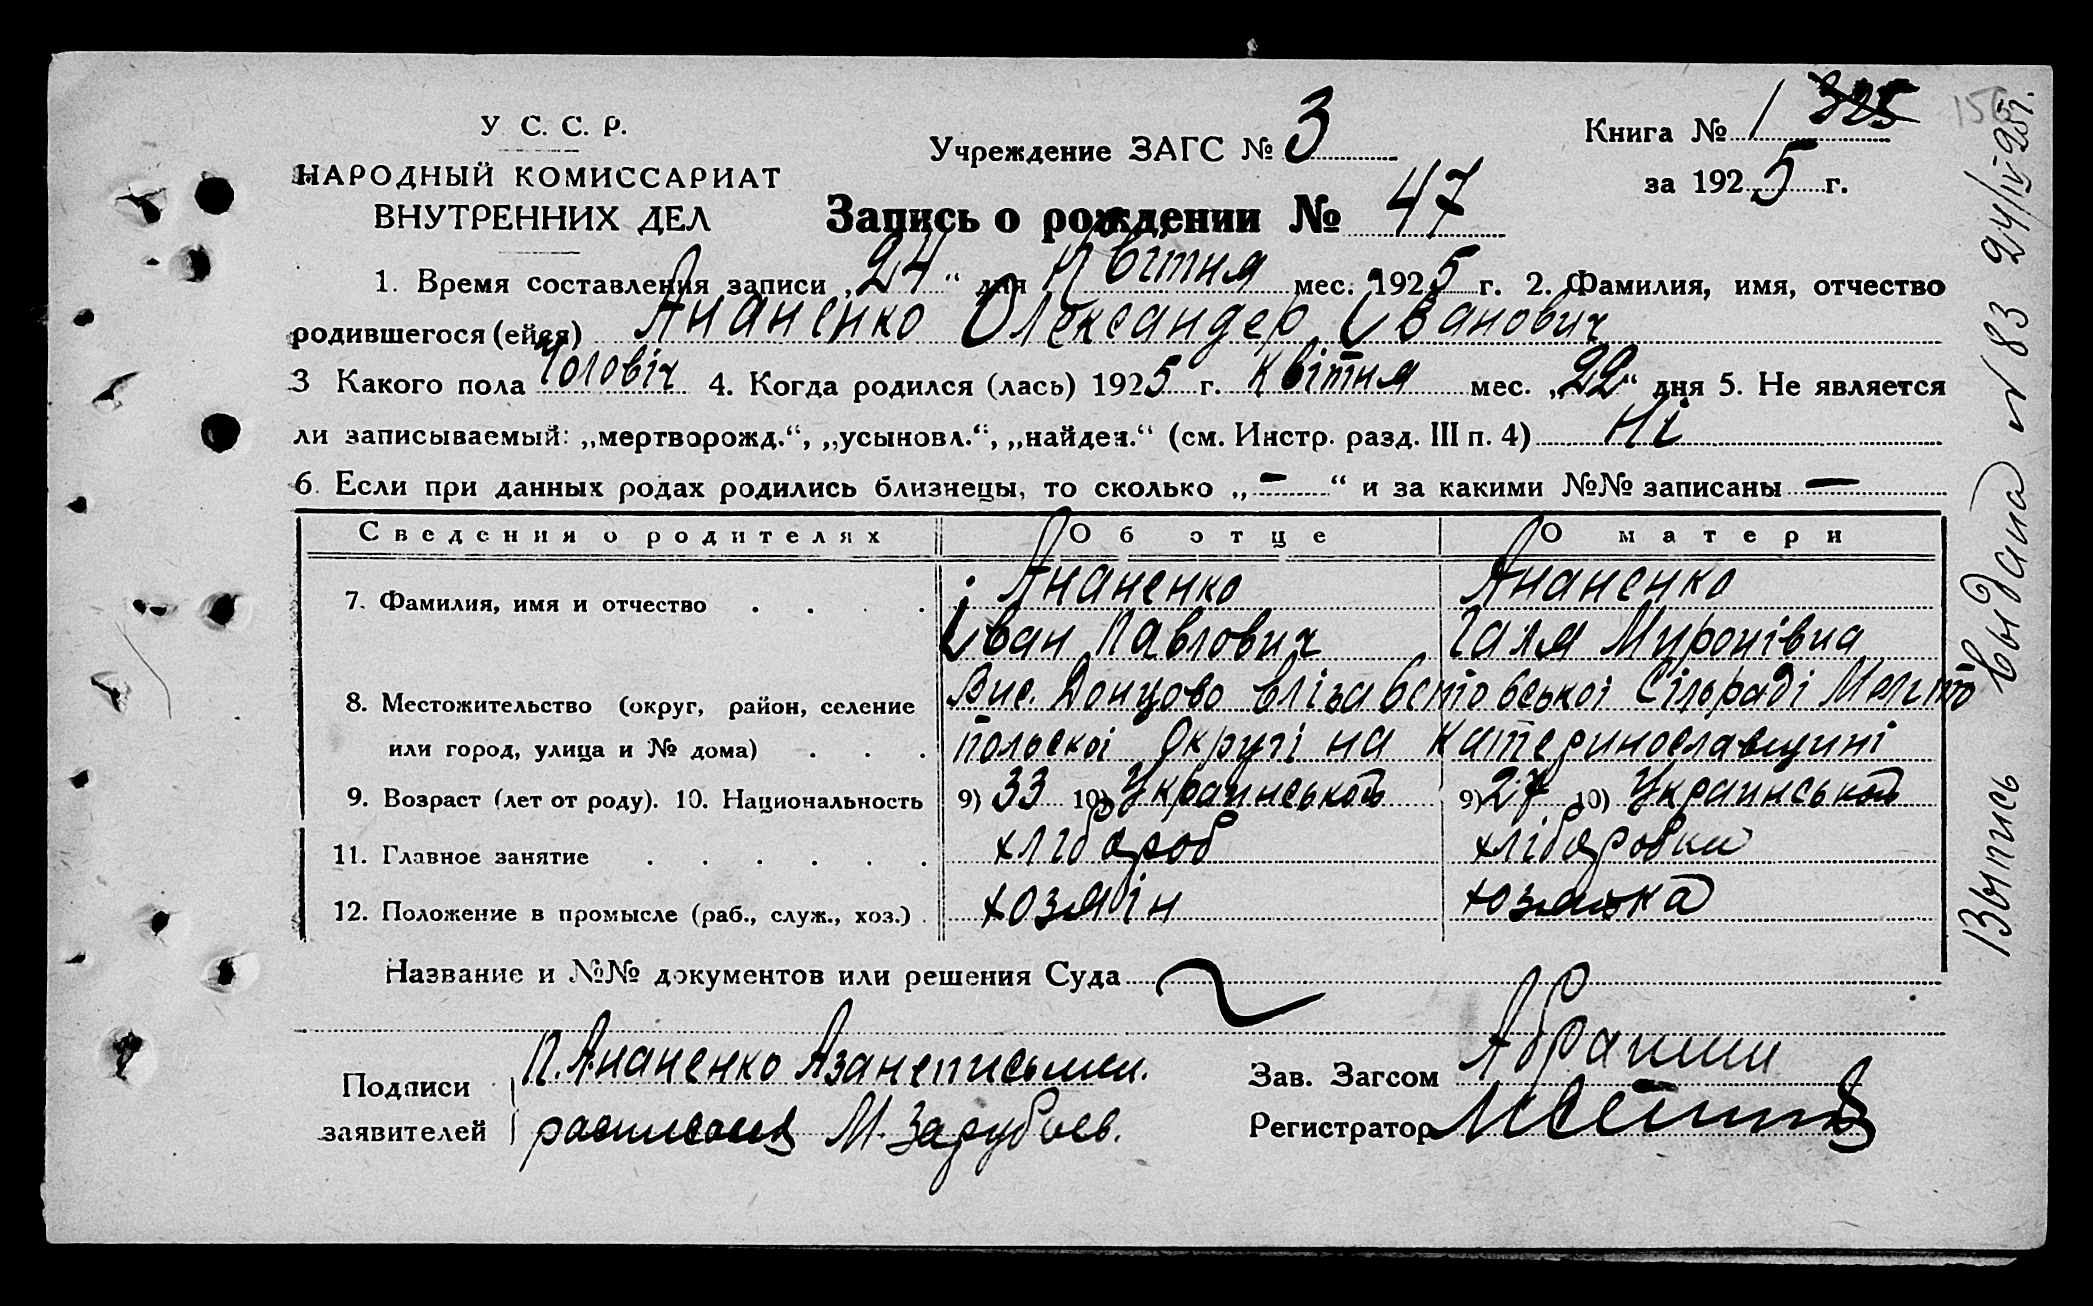 У. С. С. Р.
НАРОДНЫЙ КОМИССАРИАТ
ВНУТРЕННИХ ДЕЛ
Учреждение ЗАГС № 3
Книга № 1 325
за 1925 г.
Запись о рождении № 47
1. Время составления записи „24“ дня Квітня мес. 1925 г. 2. Фамилия, имя, отчество
родившегося (ейся) Ананенко Олександер Іванович
3 Какого пола Чоловіч 4. Когда родился (лась) 1925 г. Квітня мес. „22“ дня 5. Не является
ли записываемый: „мертворожд.“, „усыновл.“, „найден.“ (см. Инстр. разд. III п. 4) Ні
6. Если при данных родах родились близнецы, то сколько „—“ и за какими №№ записаны —
Сведения о родителях Об отце О матери
7. Фамилия, имя и отчество Ананенко Ананенко
Іван Павлович Галя Миронівна
8. Местожительство (округ, район, селение Вис. Донцово Елізаветовської Сільраді Меліто
или город, улица и № дома) польскоі Округі на Катеринославщині
9. Возраст (лет от роду). 10. Национальность 9) 33 10) Украинськой 9) 27 10) Украинськой
11. Главное занятие хлібороб хліборобка
12. Положение в промысле (раб., служ., хоз.) хозяін хозяйка
Название и №№ документов или решения Суда
Подписи П. Ананенко Азанеписьмен.
заявителей расписался М. Зарубаев.
Зав. Загсом
Регистратор
Выпись выдана № 83 24/IV 25г.